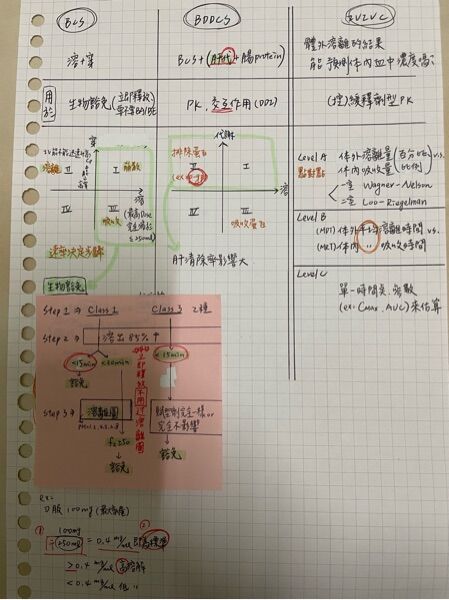 BCS
BDDCS
IVIVC
溶+穿
BCS+(肝代+腸protein)
體外溶離的結果
能預測体內血中濃度嗎?
用於
生物豁免(立即釋放)
PK, 交互作用(DDI)
(控)緩釋劑型PK
穿
代謝
溶離
II
I
溶
(最高Dose
≤250ml)
III
IV
吸收
速率決定步驟
排除蛋白
II
I
溶
IV
III
吸收蛋白
肝清除率影響大
Level A
點對點
体外溶離量(百分比) vs.
体內吸收量(
Wagner-Nelson
Loo-Riegelman
Level B
(MDT) 体外平均溶離時間 vs.
(MRT) 体內 〃 吸收時間
Level C
單一時間
(ex: Cmax, AUC) 來估算
生物豁免
Step 1 → Class 1 Class 3 2種
Step 2 → 溶出85%↑
<15min
<30min
<15min
豁免
立即釋放不用溶離圖
Step 3 → 溶離圖
賦型劑完全一樣or
完全不影響
f2≥50
豁免
豁免
ex:
口服100mg(最大劑量)
① 100mg
250ml = 0.4 mg/ml 即為標準 ②
>0.4 mg/ml 高溶解
<0.4 mg/ml 低 〃